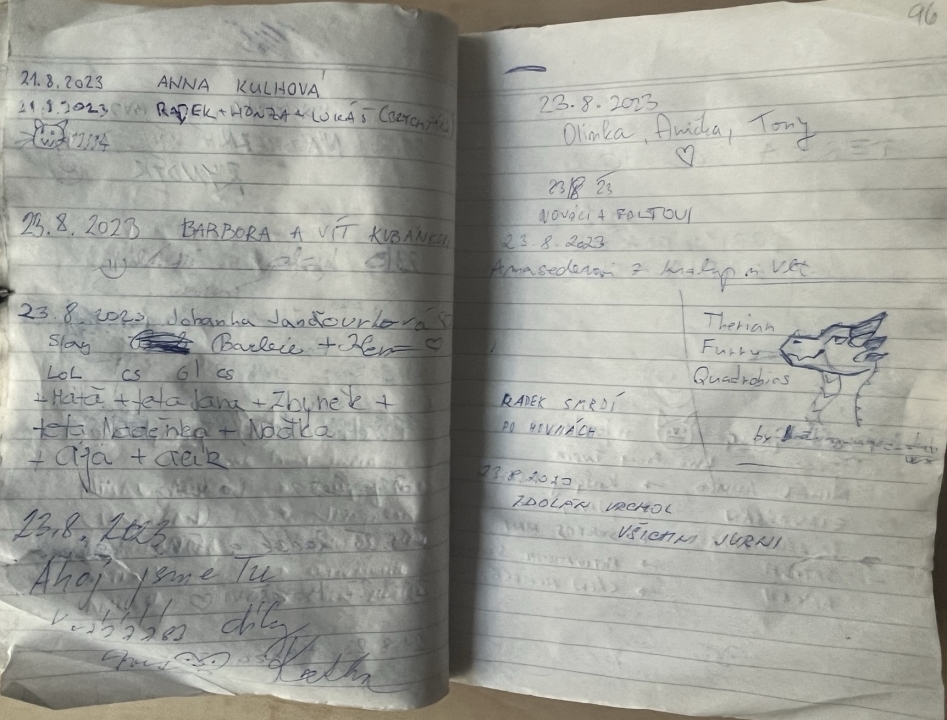 21.8.2023 ANNA KULHOVÁ
21.8.2023 RADEK + HONZA + LUKÁŠ
23.8.2023 BARBORA A VÍT
23.8.2023 Johanka
Slay Barbie + Ken ♡
LoL CS GI CS
+ Háťa + teta Jana + Zbyněk +
teta Naděnka + Naďka
+ Ája +
23.8.2023
Ahoj jsme Tu
díky
96
23.8.2023
Olinka, Anička, Tony
♡
23/8 23
NOVÁCI A FOLTOVI
23.8.2023
z
Therian
Furry
Quadrobics
by
RADEK SMRDÍ
PO HOVNÁCH
23.8.2023
ZDOLÁN VRCHOL
VŠICHNI